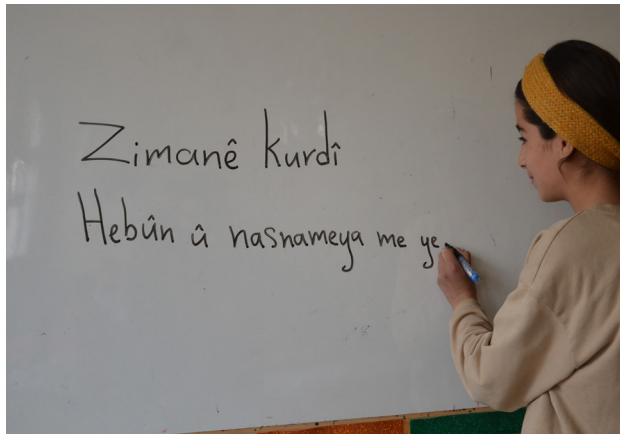 Zimanê kurdî
Hebûn û nasnameya me ye